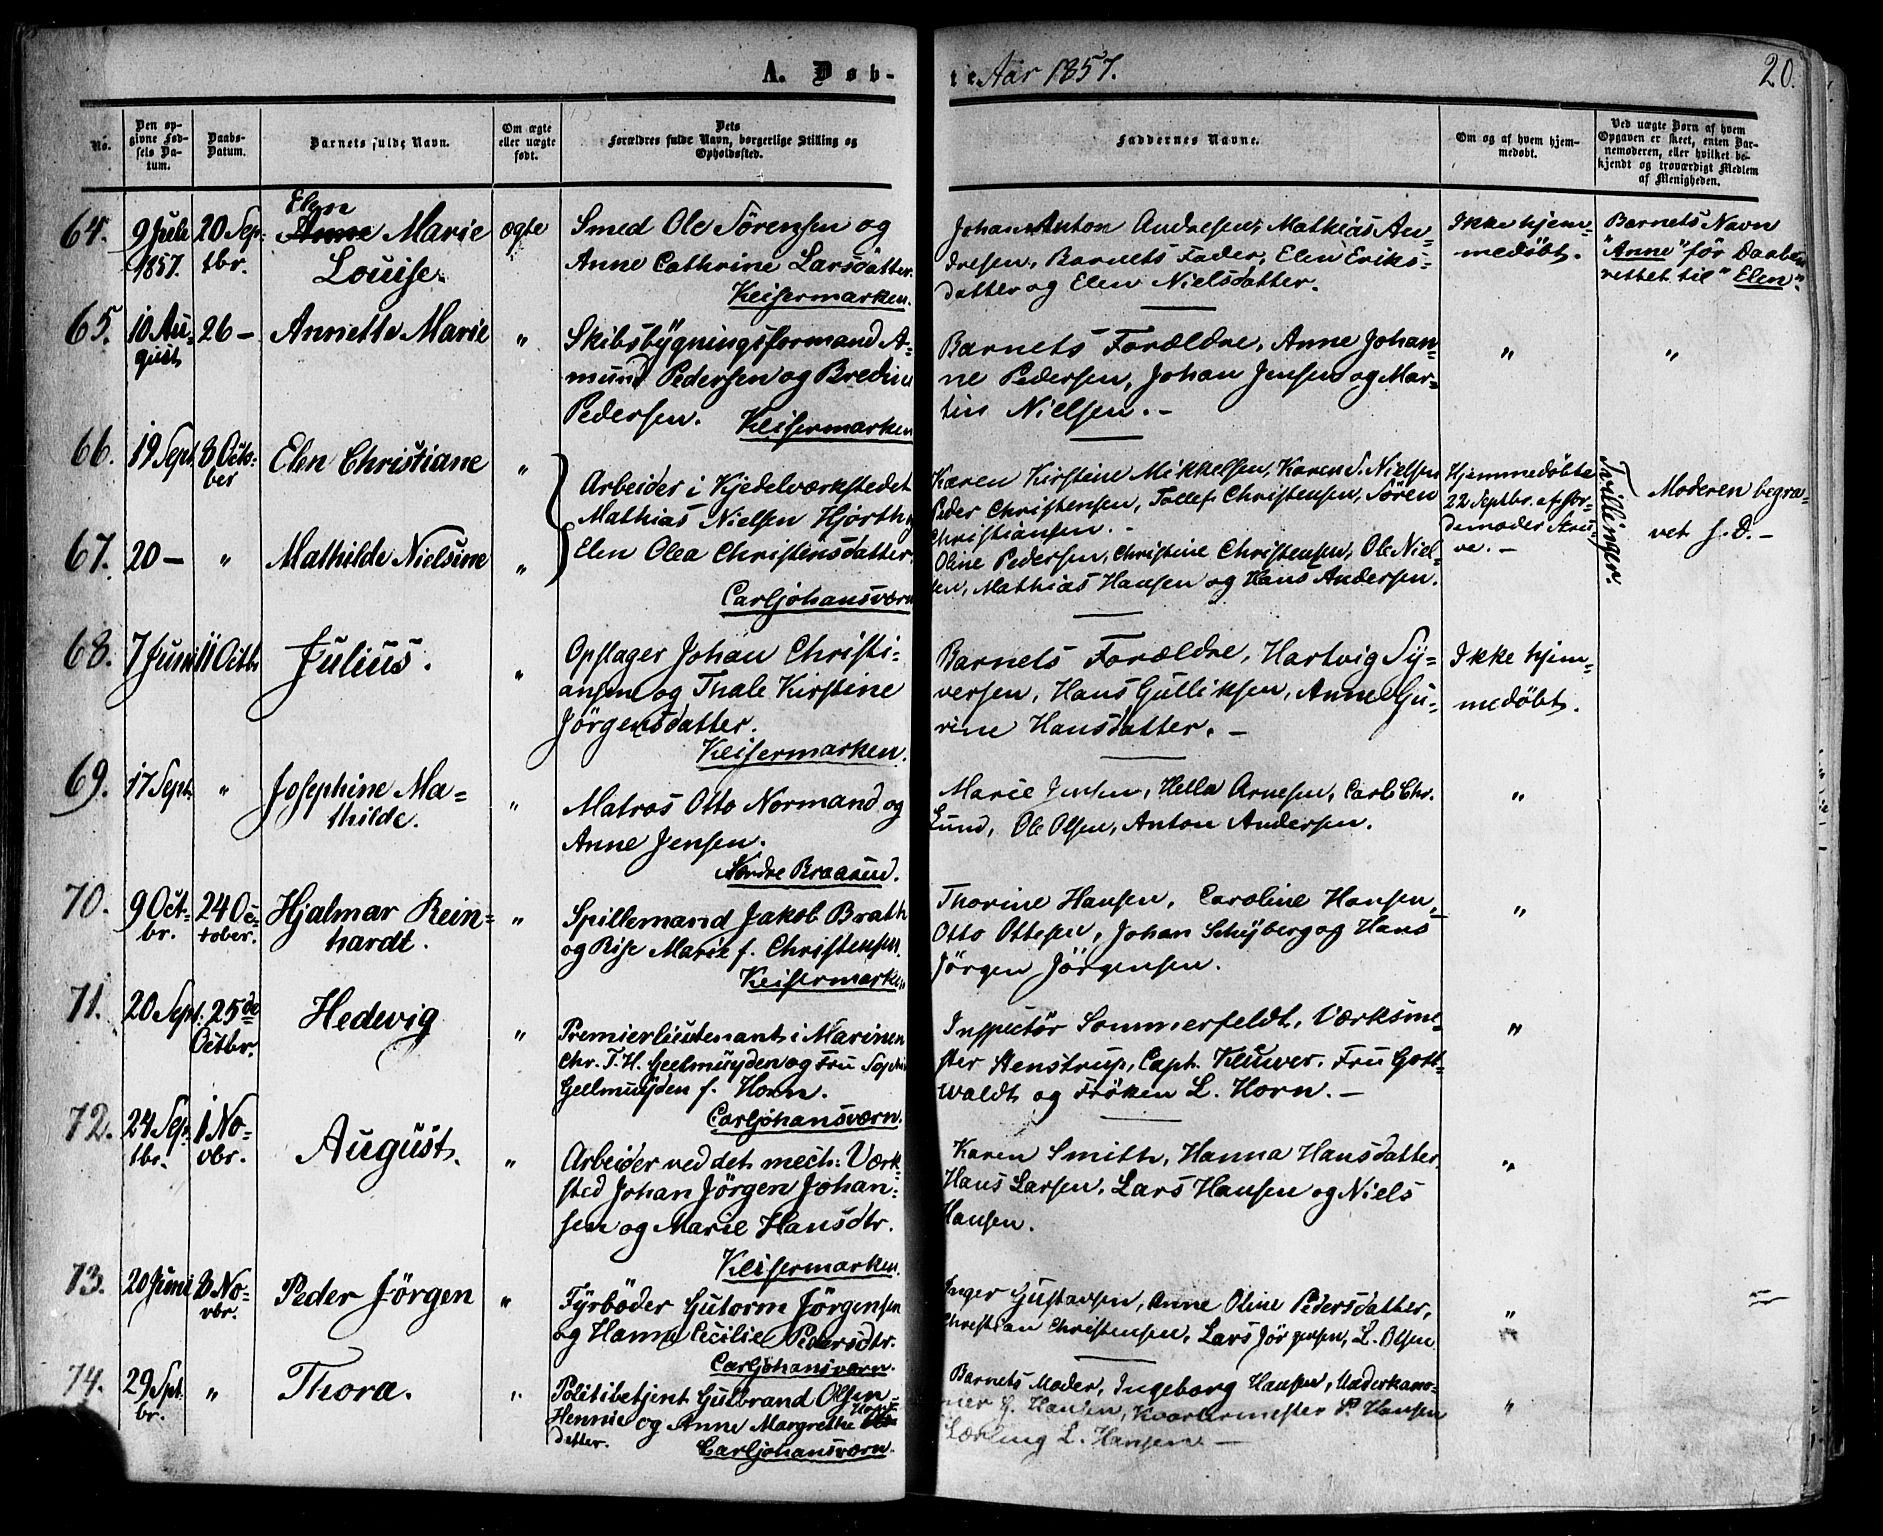 A. Døb-
te Aar 1857.
20.
No.
Den opgivne Fødsels Datum.
Daabs-Datum.
Barnets fulde Navn.
Om ægte eller uægte født.
Dets Forældres fulde Navn, borgerlige Stilling og Opholdssted.
Faddernes Navne.
Om og af hvem hjemmedøbt.
Ved uægte Børn af hvem Opgaven er skeet, enten Barnemoderen, eller hvilket bekjendt og troværdigt Medlem af Menigheden.
64.
9 Juli
1857.
20 Sep-
tbr.
Elen
Anne Marie
Louise.
ægte
Smed Ole Sørensen og
Anne Cathrine Larsdatter.
Keisermarken.
Johan Anton Andresen, Mathias An-
dresen, Barnets Fader, Elen Eriks-
datter og Elen Nielsdatter.
Ikke hjem-
medøbt.
Barnets Navn
"Anne" før Daaben
rettet til "Elen".
65.
10 Au-
gust
26 -
Annette Marie
"
Skibsbygningsformand A-
mund Pedersen og Bredine
Pedersen.
Keisermarken
Barnets Forældre, Anne Johan-
ne Pedersen, Johan Jensen og Mar-
tin Nielsen. -
"
"
66.
19 Sept.
8 Octo-
ber
Elen Christiane
"
Arbeider i Kjedelværkstedet
Mathias Nielsen Hjorth og
Karen Kirstine Mikkelsen, Karen S. Nielsen
Peder Christensen, Tollef Christensen, Sören
Christiansen. -
Hjemmedøbte
22 Septbr. af Jor-
demoder Skru-
ve. -
Tvillinger.
Moderen begra-
vet s. D. -
67.
20 -
"
Mathilde Nielsine
"
Elen Olea Christensdatter.
Carljohansværn
Oline Pedersen, Christine Christensen, Ole Niel-
sen, Mathias Hansen og Hans Andersen.
68.
7 Juni
11 Octb.
Julius.
"
Opslager Johan Christi-
ansen og Thale Kirstine
Jörgensdatter.
Keisermarken.
Barnets Forældre, Hartvig Sy-
versen, Hans Gulliksen, Anne Gu-
rine Hansdatter. -
Ikke hjem-
medøbt.
69.
17 Sept.
"
Josephine Ma-
thilde.
"
Matros Otto Normand og
Anne Jensen.
Nordre Braasud.
Marie Jensen, Hella Arnesen, Carl Chr.
Lund, Ole Olsen, Anton Andersen.
"
70.
9 Oct-
br.
24 Oc-
tober.
Hjalmar Rein-
hardt.
"
Spillemand Jakob Brath
og Rise Marie f. Christensen.
Keisermarken
Thorine Hansen, Caroline Hansen,
Otto Ottesen, Johan Schyberg og Hans
Jörgen Jörgensen.
"
71.
20 Sept.
25de
Octbr.
Hedevig
"
Premierlieutenant i Marinen
Chr. T. H. Geelmuyden og Fru Sophie
Geelmuyden f. Horn.
Carljohansværn.
Inspectör Sommerfeldt, Værksme-
ster Stenstrup, Capt. Klüwer, Fru Gott-
waldt og Fröken L. Horn. -
"
72.
24 Sep-
tbr.
1 No-
vbr.
August.
"
Arbeider ved det mech: Værk-
sted Johan Jörgen Johan-
sen og Marie Hansdtr.
Keisermarken.
Karen Smith, Hanna Hansdatter
Hans Larsen, Lars Hansen og Niels
Hansen.
"
73.
20 Juni
8 No-
vbr.
Peder Jörgen
"
Fyrbøder Gutorm Jörgensen
og Hanna Cecilie Pedersdtr.
Carljohansværn.
Inger Gustavsen, Anne Oline Pedersdatter,
Christian Christensen, Lars Jörgensen, L. Olsen
"
74.
29 Spt.
br.
"
Thora.
"
Politibetjent Gulbrand Olsen
Hennie og Anne Margrethe Hans-
datter.
Carljohansværn.
Barnets Moder, Ingeborg Hansen, Underkano-
ner H. Hansen, Kvarteermester P. Hansen
Lærling L. Hansen. -
"